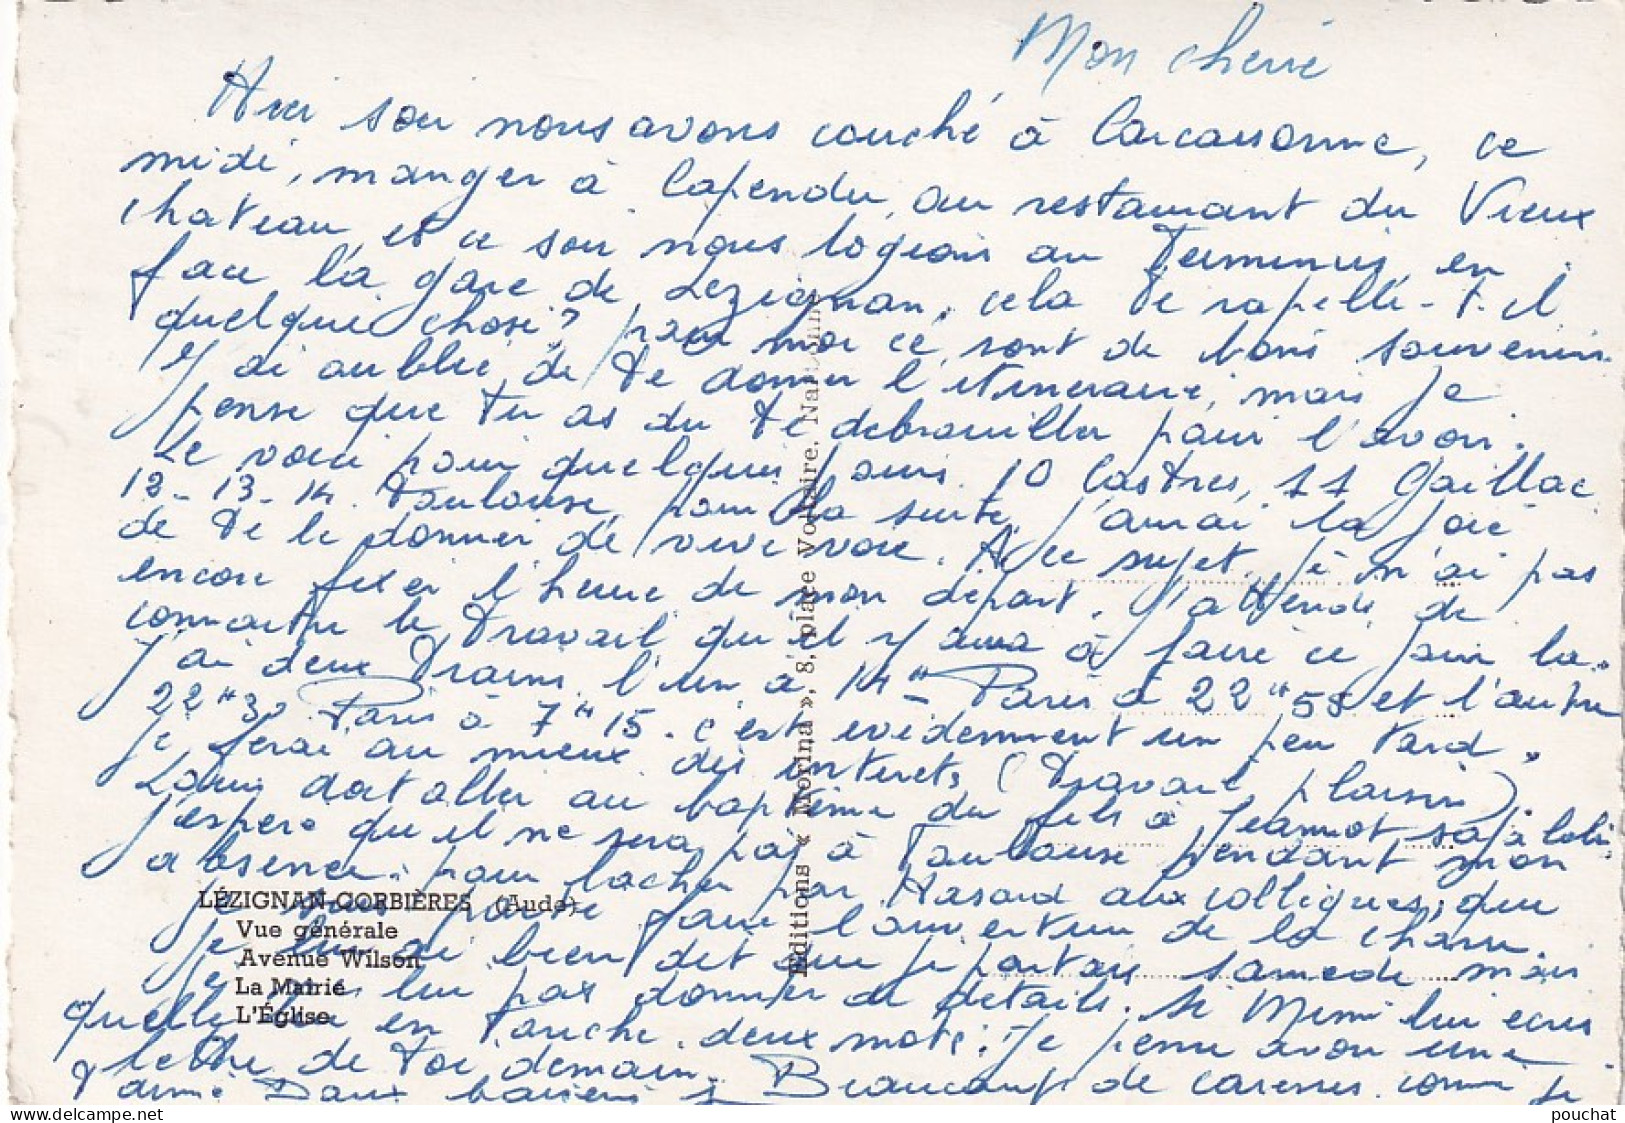 Mon cherie
Hier soir nous avons couché à Carcassonne, ce
midi, manger à Capendu, au restaurant du Vieux
chateau, et ce soir nous logeons au Terminus, en
face l'a gare de Lezignan, cela te rapelle-t-il
quelque chose? pour moi ce sont de bons souvenirs.
J'ai oublié de te donner l'itineraire, mais je
pense que tu as du te debrouiller pour l'avoir.
Le voici pour quelques jours. 10 Castres, 11 Gaillac
12-13-14 Toulouse, pour la suite, j'aurai la joie
de te le donner de vive voie. A ce sujet, je n'ai pas
encore fixer l'heure de mon départ. J'attends de
connaitre le travail qu'il y aura à faire ce jour la.
J'ai deux trains, l'un à 14H Paris à 22H55 et l'autre
22H30 Paris à 7H15. c'est evidemment un peu tard.
je ferai au mieux des interets (travail, plaisir).
Louis doit aller au baptême du fils à Jeannot
j'espere qu'il ne sera pas à Toulouse pendant mon
absence, pour lacher par Hasard aux collègues, que
je pour faire l'ouverture de la chasse.
Je lui ai bien dit que je partais samedi mais
je lui pas donner de details. Si Mimi lui ecris
qu'elle lui en touche deux mots. Je pense avoir une
lettre de toi demain. Beaucoup de caresses comme je
t'aime Doux baisers
LÉZIGNAN-CORBIÈRES (Aude)
Vue générale
Avenue Wilson
La Mairie
L'Église
Editions « Morina », 8, place Voltaire, Narbonne
pouchat
delcampe.net